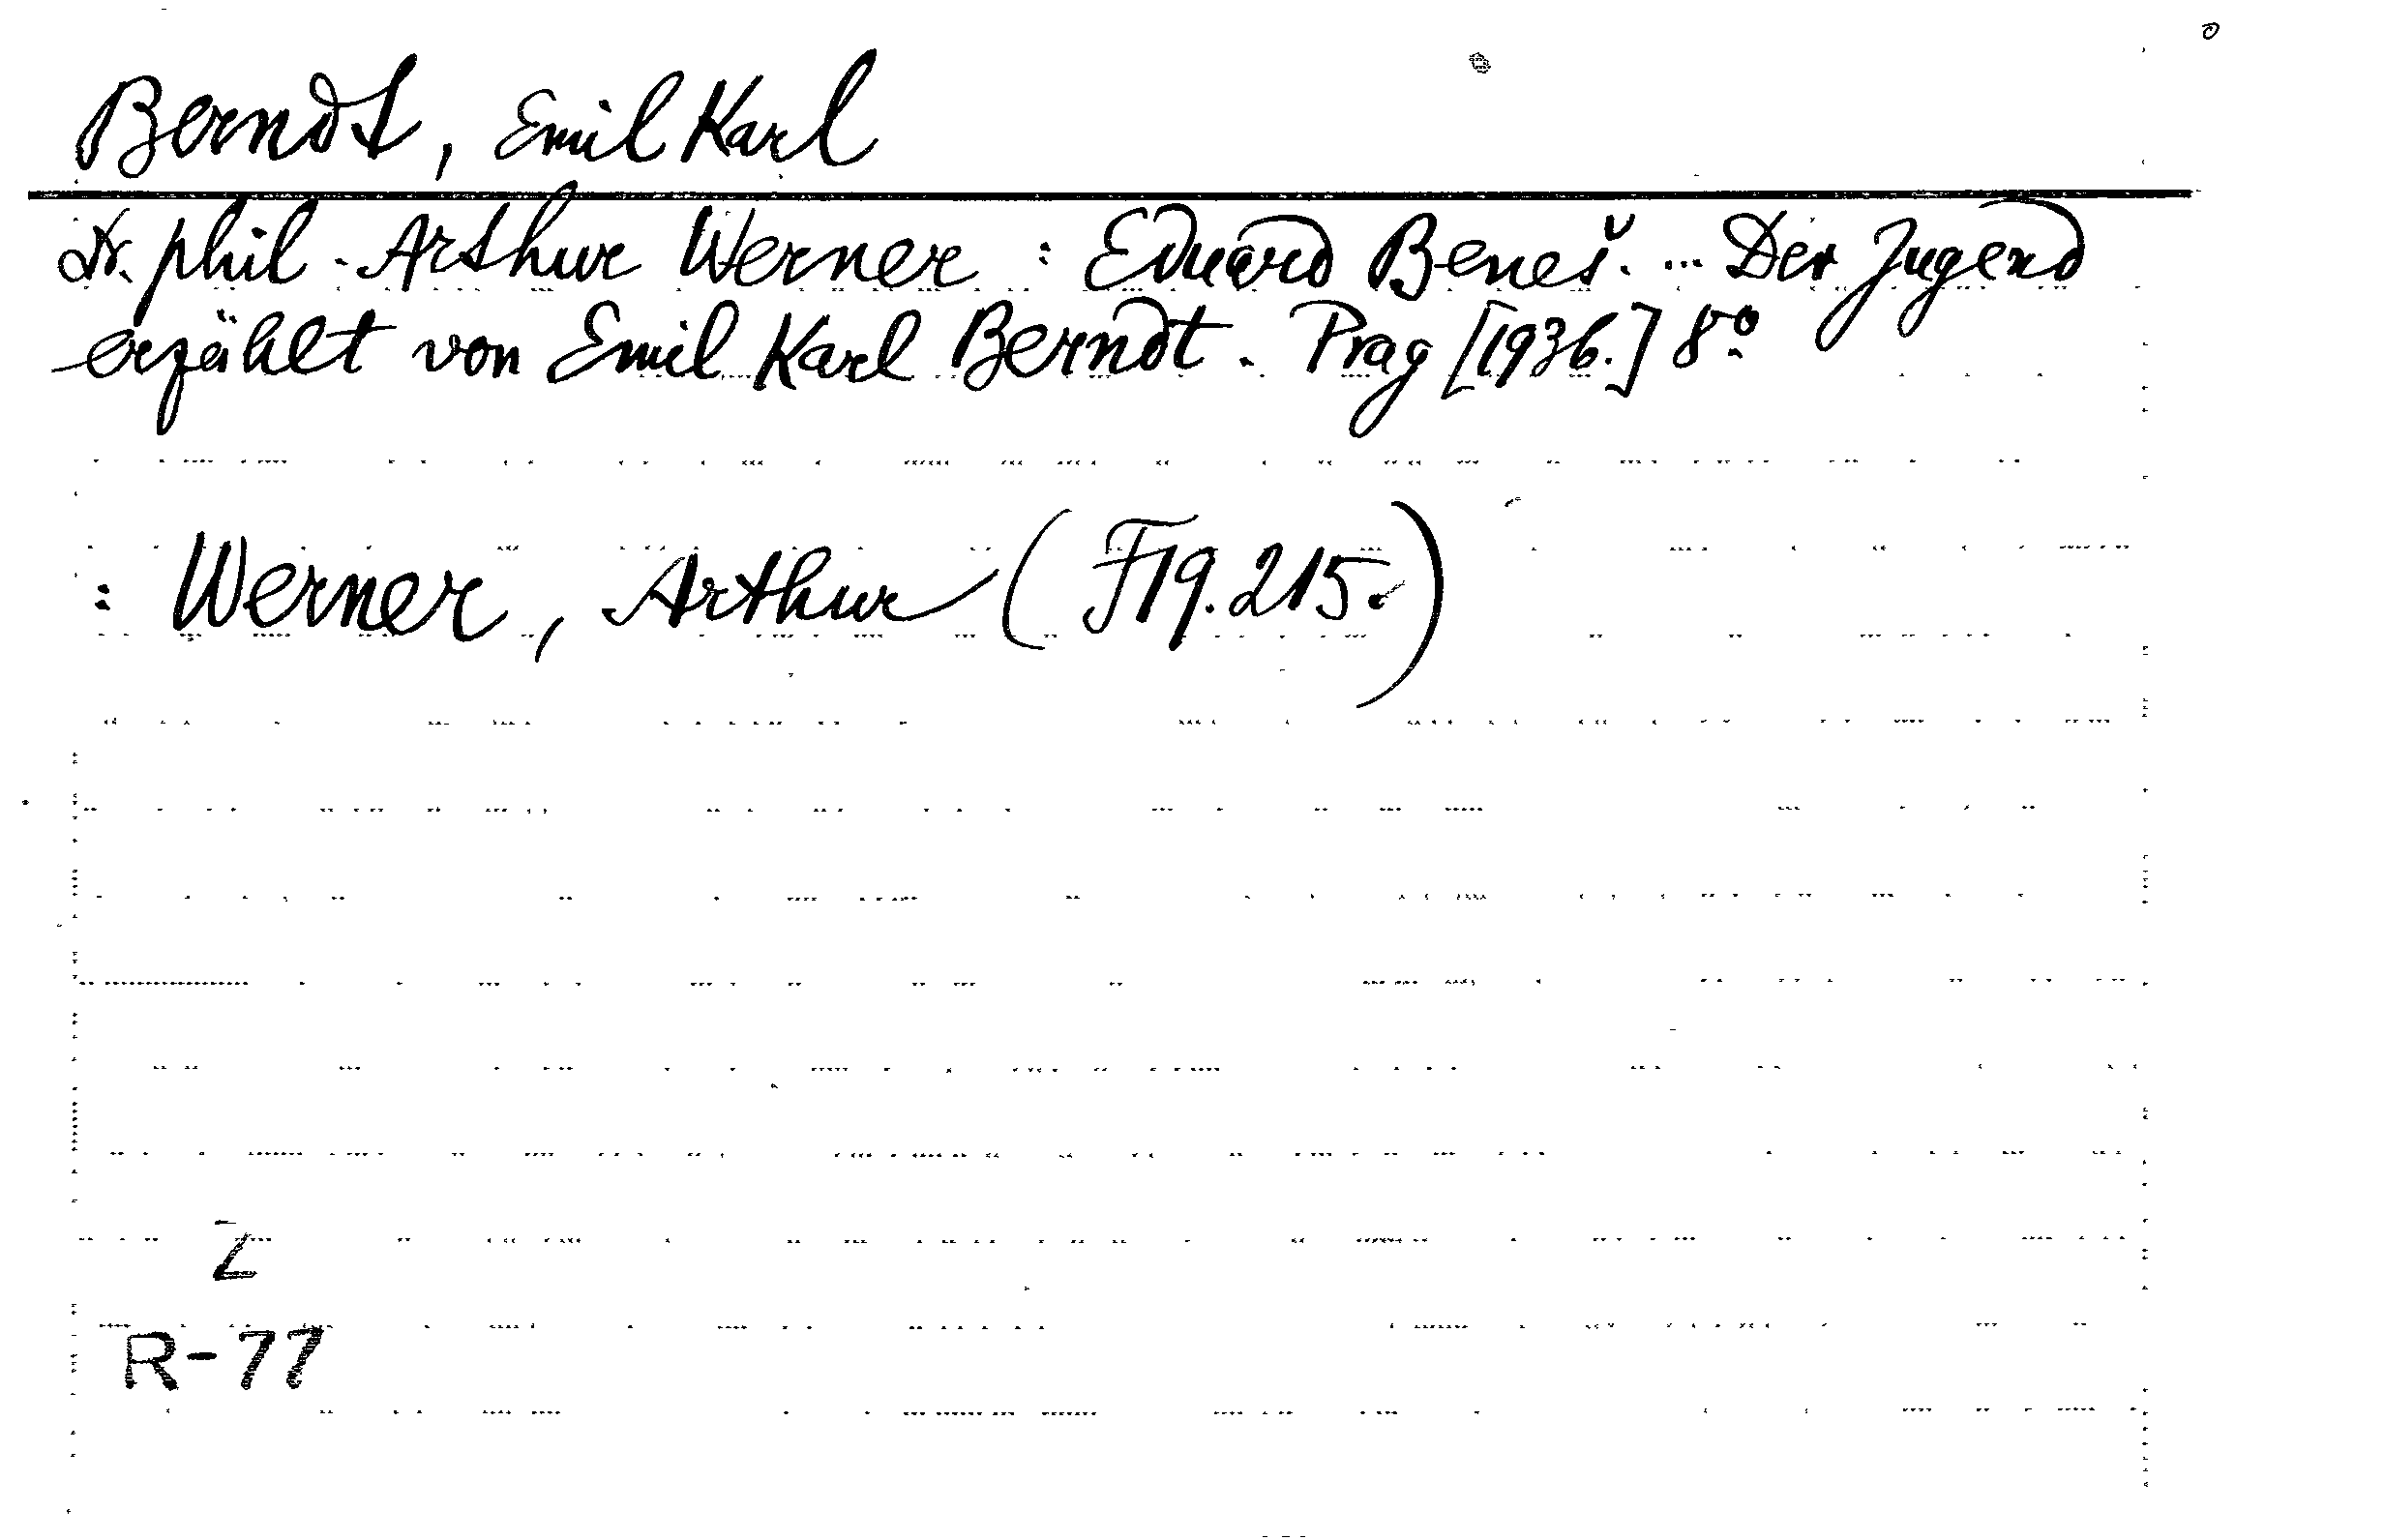 Berndt, Emil Karl
Dr. phil. Arthur Werner : Eduard Beneš. ... Der Jugend
erzählt von Emil Karl Berndt. Prag [1936.] 8°.
: Werner, Arthur (F19.215.)
Z
R-77